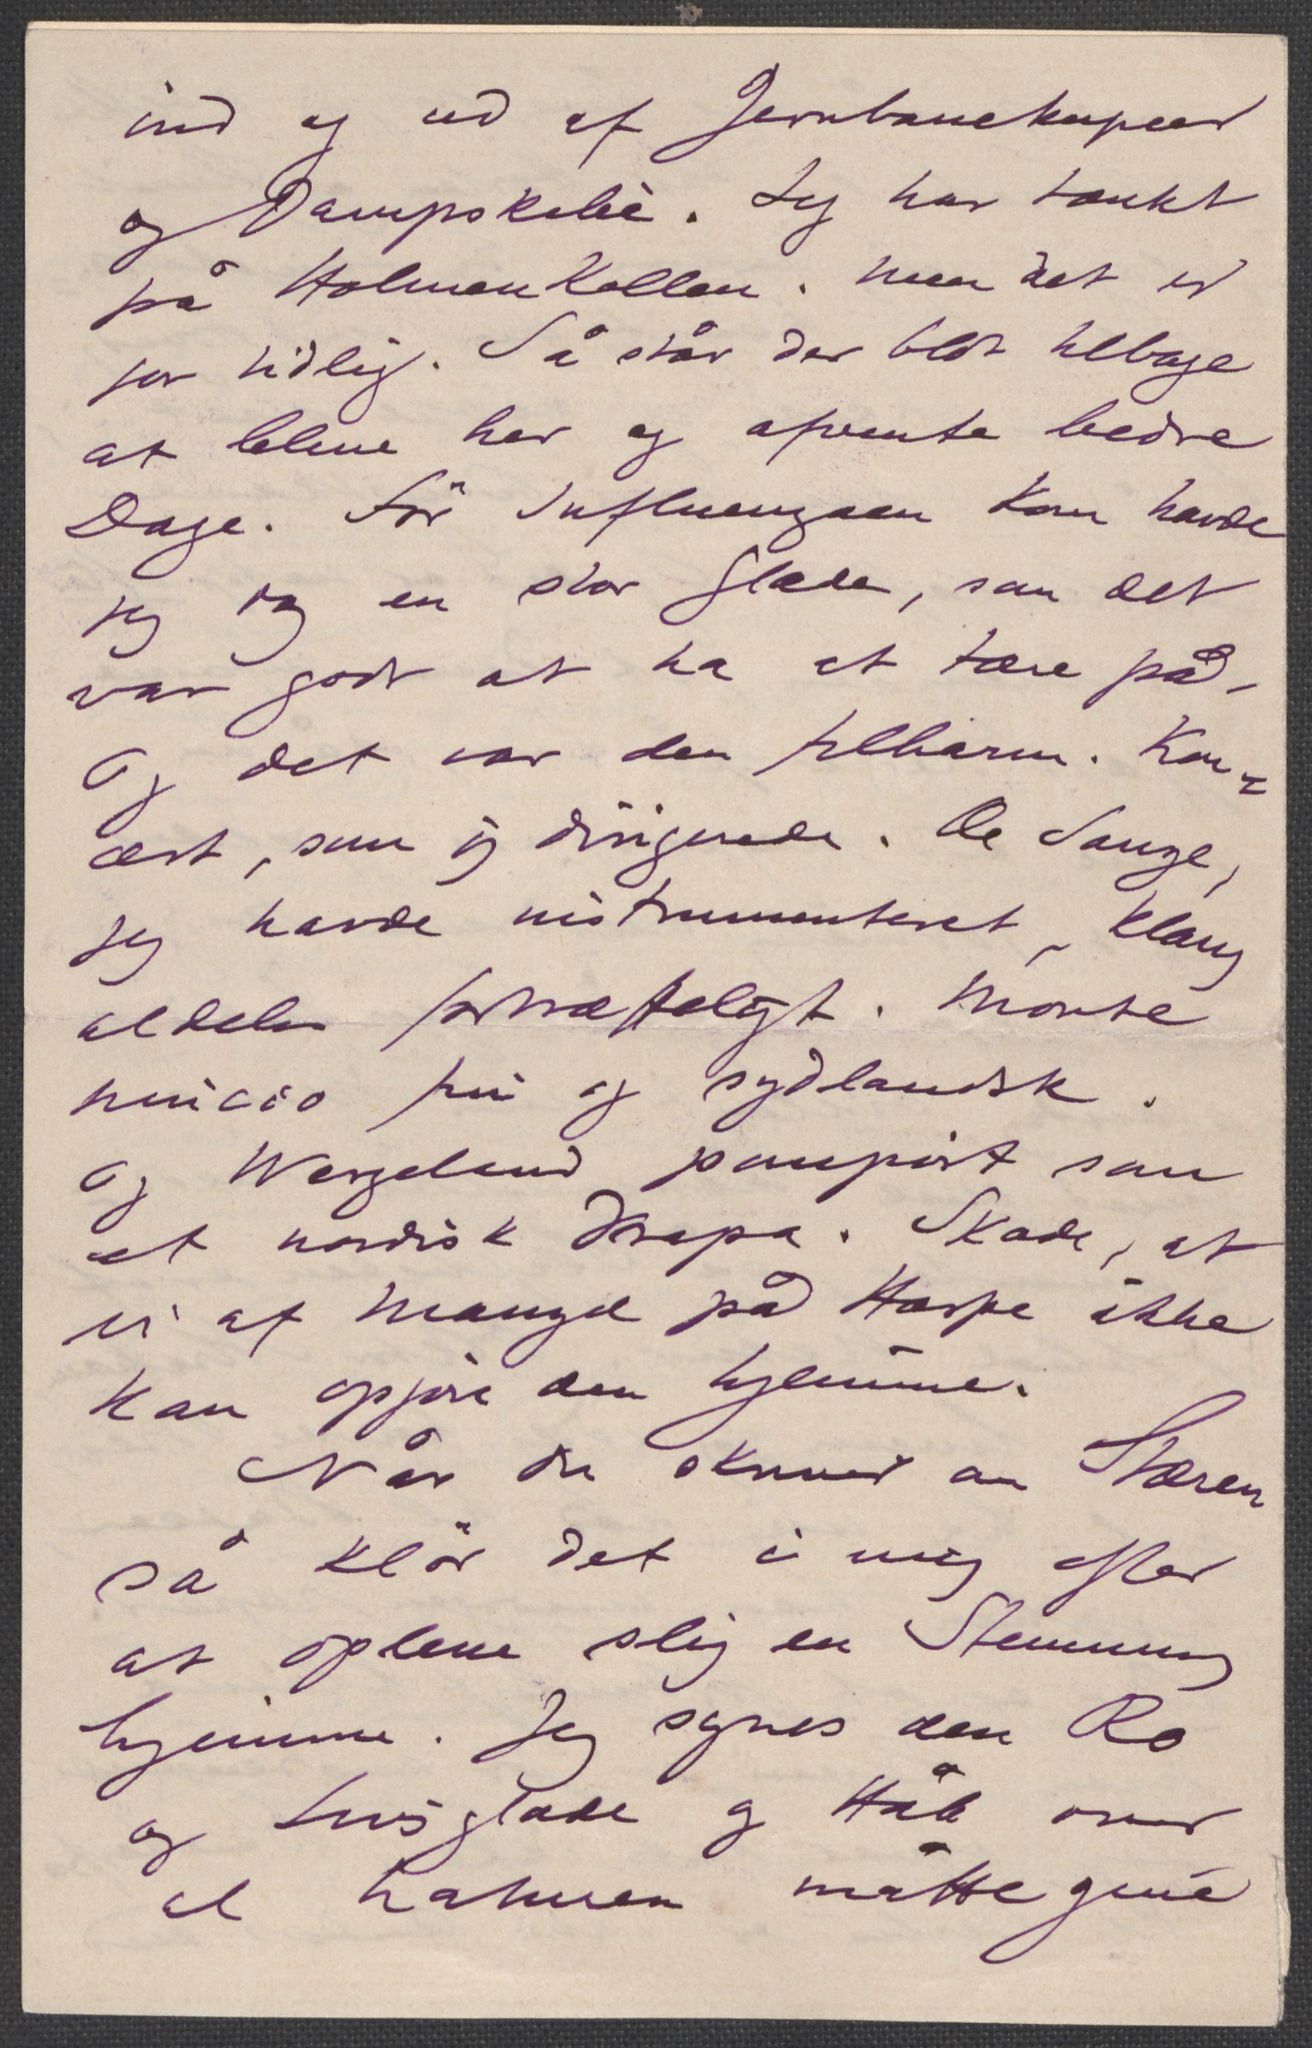 ind og ud af Jernbanekupeer
og Dampskibe. Jeg har tænkt
på HolmenKollen. Men det er
for tidlig. Så står der blot tilbage
at blive her og afvente bedre
Dage. Før Influenzaen kom havde
jeg dog en stor Glæde, som det
var godt at ha at tære på,
Og det var den filharm. Kon=
cert, som jeg dirigerede. De Sange,
jeg havde instrumenteret, klang
aldeles fortræffeligt. Monte
Pincio fin og sydlandsk.
Og Wergeland pompøst som
et nordisk Drapa. Skade, at
vi af Mangel på Harpe ikke
kan opføre den hjemme.
Når du skriver om Stæren
så klør det i mig efter
at opleve slig en Stemning
hjemme. Jeg synes den Ro
og Livsglæde og Håb over
al Naturen måtte give